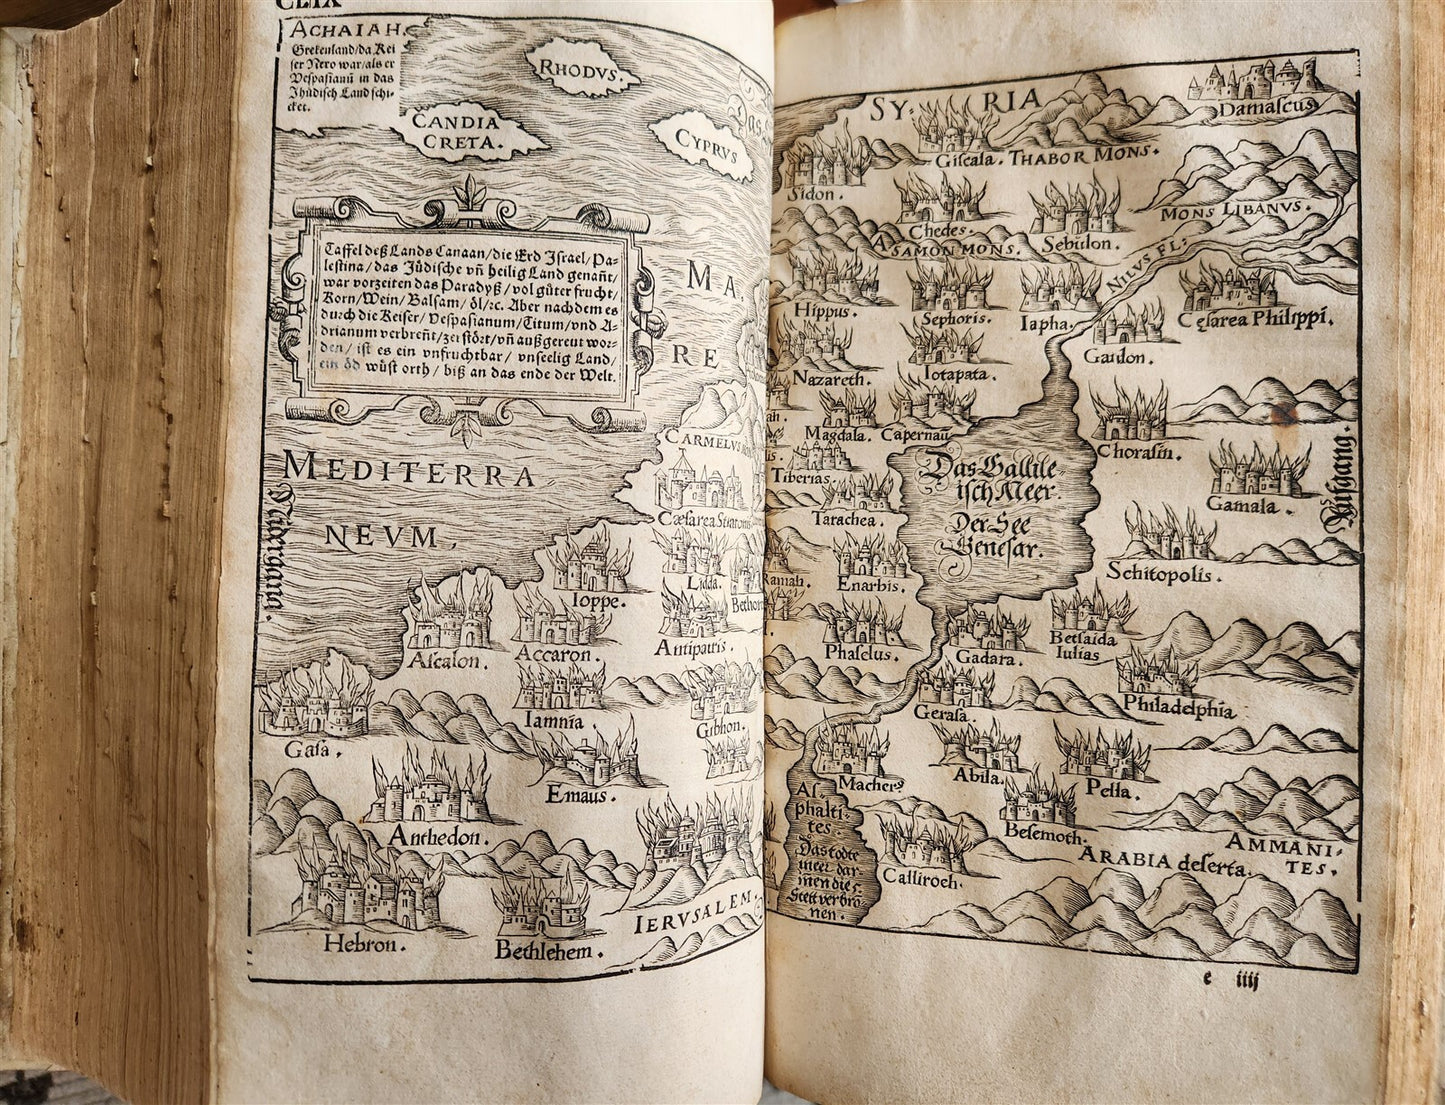 CLIX
ACHAIAH.
Grekenland/da Kei
ser Nero war/als er
Vespasianū in das
Jhüdisch Land schi-
cket.
RHODVS.
CANDIA
CRETA.
CYPRVS
Taffel deß Lands Canaan/die Erd Israel/Pa-
lestina/das Jüdische vñ heilig Land genañt/
war vorzeiten das Paradyß/vol güter frucht/
Korn/Wein/Balsam/öl/ꝛc. Aber nachdem es
durch die Keiser/Vespasianum/Titum/vnd A-
drianum verbreñt/zerstört/vñ außgereut wor-
den/ist es ein vnfruchtbar/vnseelig Land/
ein öd wüst orth/biß an das ende der Welt.
MA.
RE
MEDITERRA
NEVM.
CARMELVS
Cæsarea Stratonis
Lidda.
Ioppe.
Antipatris.
Ascalon.
Accaron.
Iamnia.
Gibhon.
Gasa.
Emaus.
Anthedon.
IERVSALEM.
Hebron.
Bethlehem.
SYRIA
Damascus
Giscala. THABOR MONS.
Sidon.
MONS LIBANVS.
Chedes.
Sebulon.
ASAMON MONS.
NILVS FL:
Hippus.
Sephoris.
Iapha.
Cęsarea Philippi.
Gaulon.
Nazareth.
Iotapata.
Magdala.
Capernaū
Chorasin.
Tiberias.
Das Gallile-
isch Meer.
Der See
Genesar.
Gamala.
Auffgang.
Tarachea.
Schitopolis.
Ramah.
Enarbis.
Phaselus.
Gadara.
Betsaida
Iulias
Philadelphia
Gerasa.
Macher⁹
Abila.
Pella.
As-
phalti-
tes.
Das todte
meer dar-
innen die 5.
Stett verbrō-
nen.
Besemoth.
AMMANI-
TES.
ARABIA deserta.
Calliroeh.
e iiij